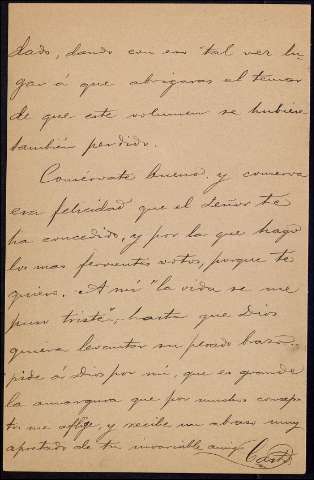 dado, dando con eso tal vez lu-
gar á que abrigaras el temor
de que este volumen se hubiese
tambien perdido.
Consérvate bueno y conserva
esa felicidad que el Señor te
ha concedido, y por la que hago
los mas fervientes votos, porque te
quiero. A mi "la vida se me
puso triste", hasta que Dios
quiera levantar su pesado bazo.
pide á Dios por mi, que es grande
la amargura que por muchos concep
tos me aflige, y recibe un abrazo muy
apretado de tu invariable amigo